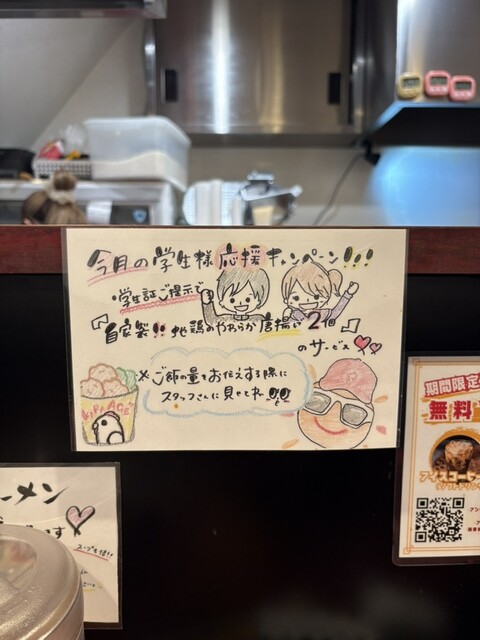 今月の学生様応援キャンペーン!!!
学生証ご提示で
『自家製!!地鶏のやわらか唐揚げ2個』
のサービス
※ご飯の量をお伝えする際に
スタッフさんに見せてネ!!
期間限定
無料
アイスコーヒー
ーメン